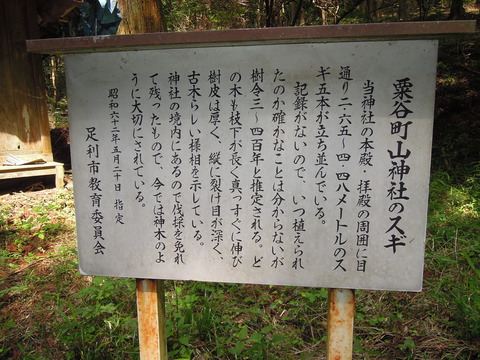 粟谷町山神社のスギ
当神社の本殿・拝殿の周囲に目
通り二・六五～四・四八メートルのス
ギ五本が立ち並んでいる。
記録がないので、いつ植えられ
たのか確かなことは分からないが
樹令三～四百年と推定される。ど
の木も枝下が長く真っすぐに伸び
樹皮は厚く、縦に裂け目が深く、
古木らしい様相を示している。
神社の境内にあるので伐採を免れ
て残ったもので、今では神木のよ
うに大切にされている。
昭和六十二年五月二十日 指定
足利市教育委員会